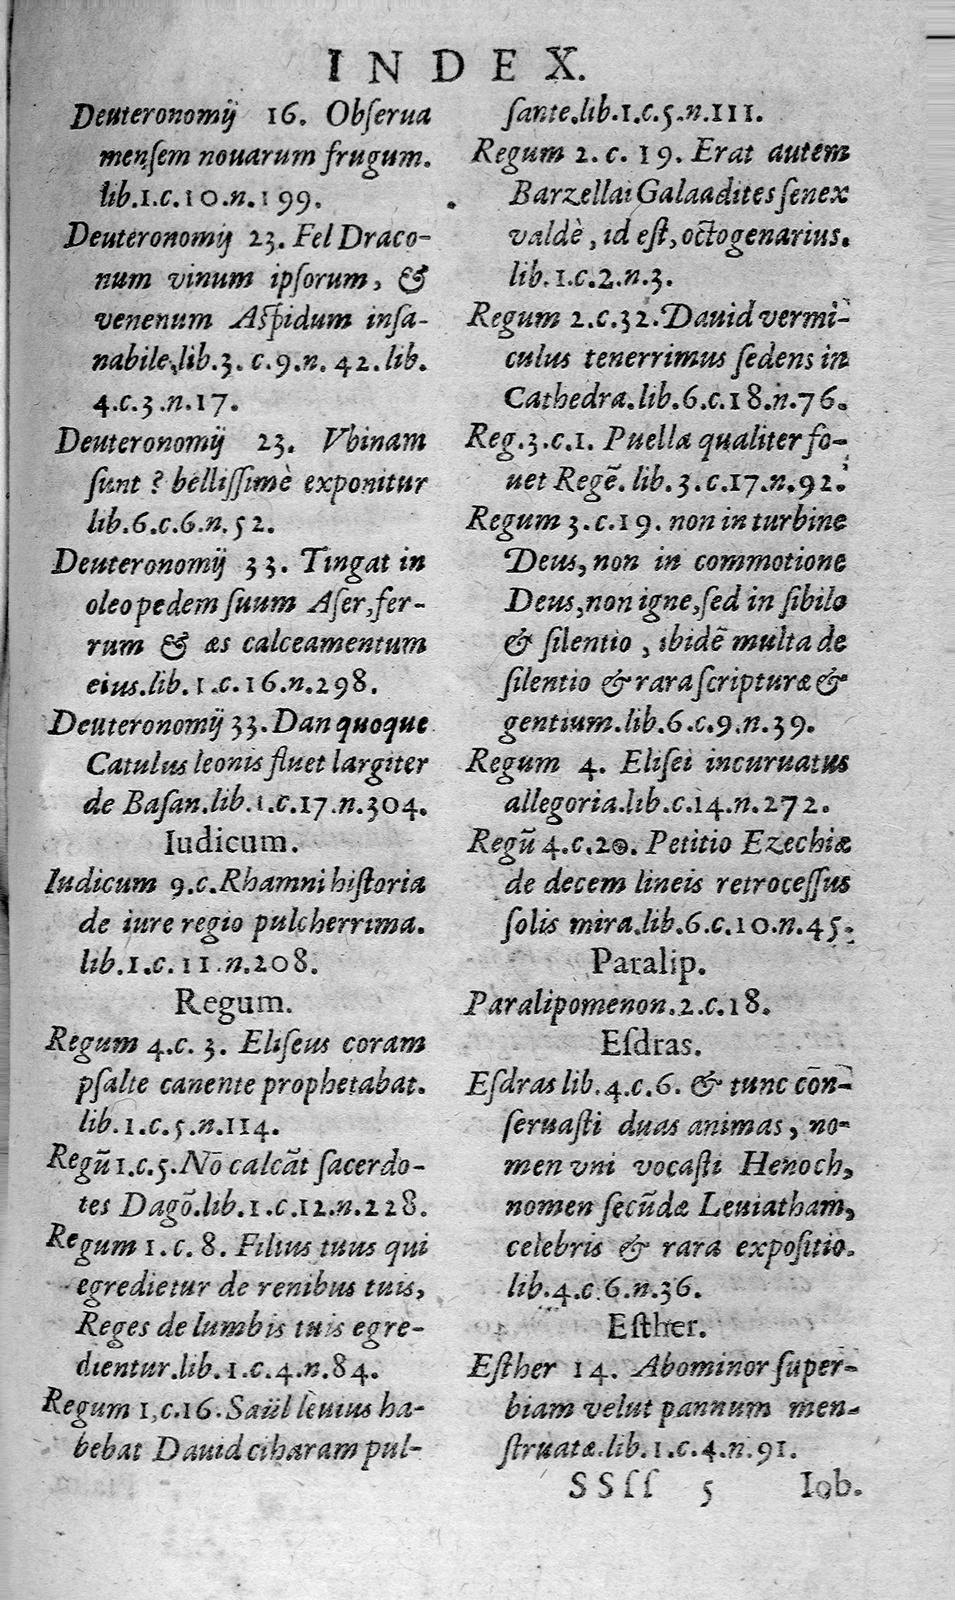 INDEX.
Deuteronomij 16. Obſerua
menſem nouarum frugum.
lib.1.c.10.n.199.
Deuteronomij 23. Fel Draco-
num vinum ipſorum, &
venenum Aſpidum inſa-
nabile.lib.3. c.9.n. 42. lib.
4.c.3.n.17.
Deuteronomij 23. Vbinam
ſunt? belliſſimè exponitur
lib.6.c.6.n.52.
Deuteronomij 33. Tingat in
oleo pedem ſuum Aſer, fer-
rum & æs calceamentum
eius.lib.1.c.16.n.298.
Deuteronomij 33. Dan quoque
Catulus leonis fluet largiter
de Baſan.lib.1.c.17.n.304.
Iudicum.
Iudicum 9.c.Rhamni hiſtoria
de iure regio pulcherrima.
lib.1.c.11.n.208.
Regum.
Regum 4.c. 3. Eliſeus coram
pſalte canente prophetabat.
lib.1.c.5.n.114.
Regū 1.c.5.Nō calcāt ſacerdo-
tes Dagō.lib.1.c.12.n.228.
Regum 1.c.8. Filius tuus qui
egredietur de renibus tuis,
Reges de lumbis tuis egre-
dientur.lib.1.c.4.n.84.
Regum 1,c.16. Saül leuius ha-
bebat Dauid ciharam pul-
ſante.lib.1.c.5.n.111.
Regum 2.c. 19. Erat autem
Barzellai Galaadites ſenex
valdè, id eſt, octogenarius.
lib.1.c.2.n.3.
Regum 2.c.32. Dauid vermi-
culus tenerrimus ſedens in
Cathedra.lib.6.c.18.n.76.
Reg.3.c.1. Puella qualiter fo-
uet Regē. lib.3.c.17.n.92.
Regum 3.c.19. non in turbine
Deus, non in commotione
Deus, non igne, ſed in ſibilo
& ſilentio, ibidē multa de
ſilentio & rara ſcripturæ &
gentium.lib.6.c.9.n.39.
Regum 4. Eliſei incuruatus
allegoria.lib.c.14.n.272.
Regū 4.c.20. Petitio Ezechiæ
de decem lineis retroceſſus
ſolis mira.lib.6.c.10.n.45.
Paralip.
Paralipomenon.2.c.18.
Eſdras.
Eſdras lib.4.c.6. & tunc cōn-
ſeruaſti duas animas, no-
men vni vocaſti Henoch,
nomen ſecūdæ Leuiatham,
celebris & rara expoſitio.
lib.4.c.6.n.36.
Eſther.
Eſther 14. Abominor ſuper-
biam velut pannum men-
ſtruatæ.lib.1.c.4.n.91.
SSſſ 5 Iob.